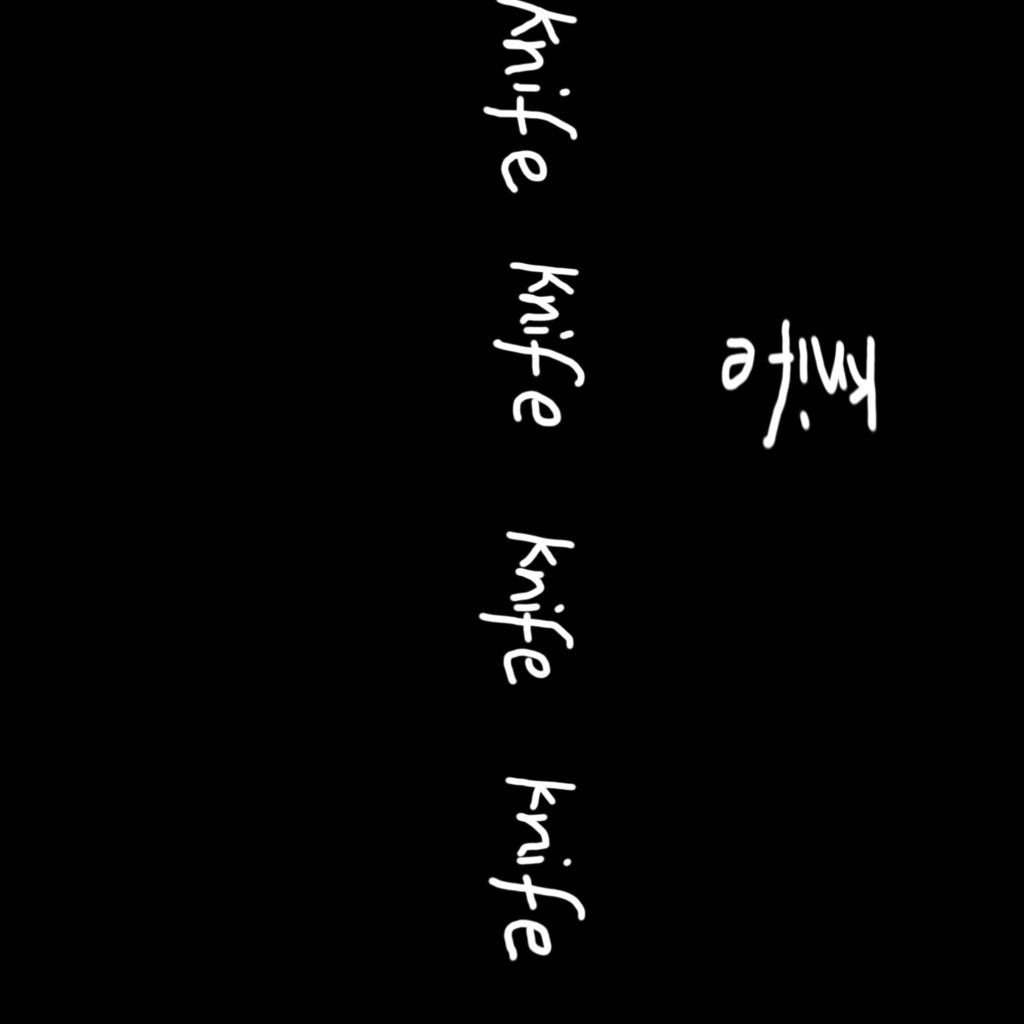 knife knife knife knife
knife